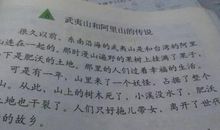 武夷山和阿里山的传说
很久以前,东南沿海的武夷山是和台湾的阿里
山连在一起的。那时漫山遍野的树上挂满了果子,
下是肥沃的土地。那里的人们过着幸福的生活。
可是有一年,山里来了一个妖怪,占据了整个
山。从此,山上的树木死了,小溪没水了,肥沃
土地也干裂了。人们只好拖儿带女,离开了世代
的故乡。